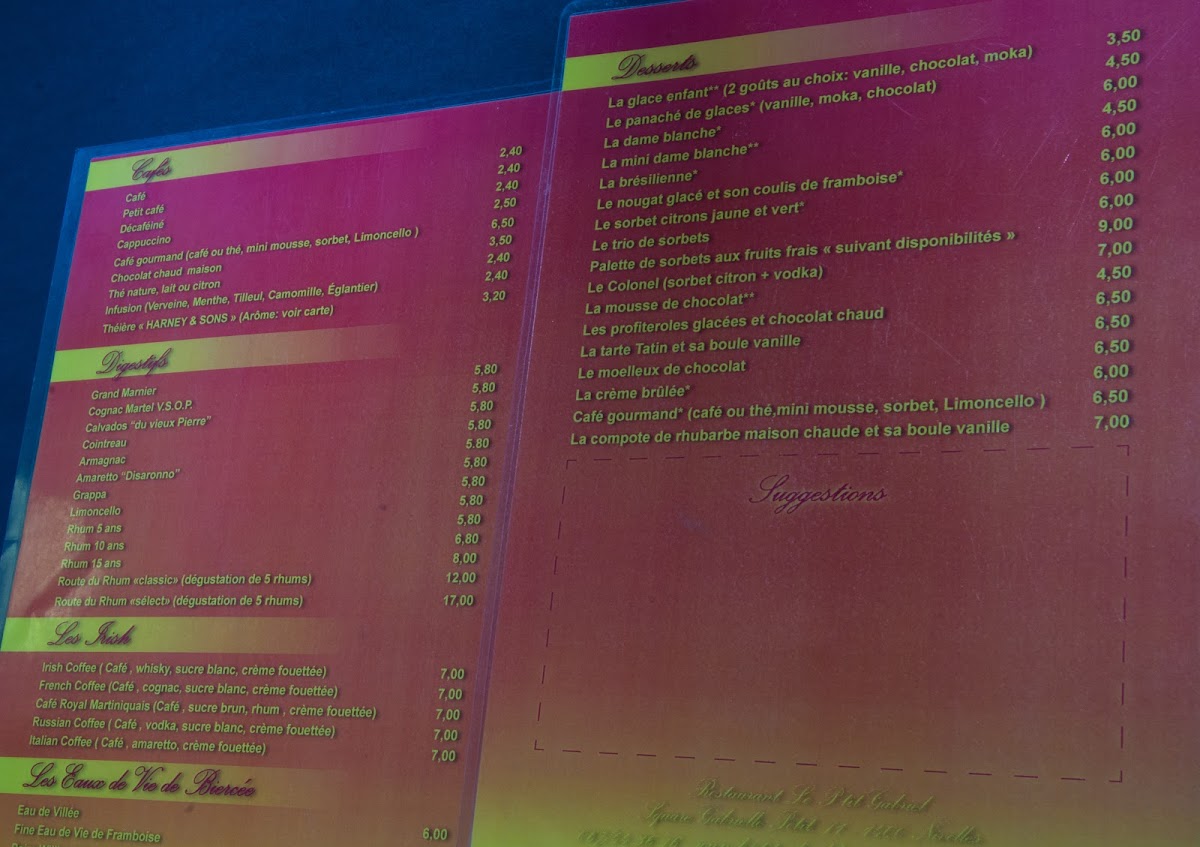 Cafés
Café 2,40
Petit café 2,40
Décaféiné 2,40
Cappuccino 2,50
Café gourmand (café ou thé, mini mousse, sorbet, Limoncello ) 6,50
Chocolat chaud maison 3,50
Thé nature, lait ou citron 2,40
Infusion (Verveine, Menthe, Tilleul, Camomille, Églantier) 2,40
Théière « HARNEY & SONS » (Arôme: voir carte) 3,20
Digestifs
Grand Marnier 5,80
Cognac Martel V.S.O.P. 5,80
Calvados “du vieux Pierre” 5,80
Cointreau 5,80
Armagnac 5.80
Amaretto “Disaronno” 5,80
Grappa 5,80
Limoncello 5,80
Rhum 5 ans 5,80
Rhum 10 ans 6,80
Rhum 15 ans 8,00
Route du Rhum «classic» (dégustation de 5 rhums) 12,00
Route du Rhum «sélect» (dégustation de 5 rhums) 17,00
Les Irish
Irish Coffee ( Café , whisky, sucre blanc, crème fouettée) 7,00
French Coffee (Café , cognac, sucre blanc, crème fouettée) 7,00
Café Royal Martiniquais (Café , sucre brun, rhum , crème fouettée) 7,00
Russian Coffee ( Café , vodka, sucre blanc, crème fouettée) 7,00
Italian Coffee ( Café , amaretto, crème fouettée) 7,00
Les Eaux de Vie de Biercée
Eau de Villée 6,00
Fine Eau de Vie de Framboise
Desserts
La glace enfant** (2 goûts au choix: vanille, chocolat, moka) 3,50
Le panaché de glaces* (vanille, moka, chocolat) 4,50
La dame blanche* 6,00
La mini dame blanche** 4,50
La brésilienne* 6,00
Le nougat glacé et son coulis de framboise* 6,00
Le sorbet citrons jaune et vert* 6,00
Le trio de sorbets 6,00
Palette de sorbets aux fruits frais « suivant disponibilités » 9,00
Le Colonel (sorbet citron + vodka) 7,00
La mousse de chocolat** 4,50
Les profiteroles glacées et chocolat chaud 6,50
La tarte Tatin et sa boule vanille 6,50
Le moelleux de chocolat 6,50
La crème brûlée* 6,00
Café gourmand* (café ou thé,mini mousse, sorbet, Limoncello ) 6,50
La compote de rhubarbe maison chaude et sa boule vanille 7,00
Suggestions
Restaurant Le Ptit Gabriel